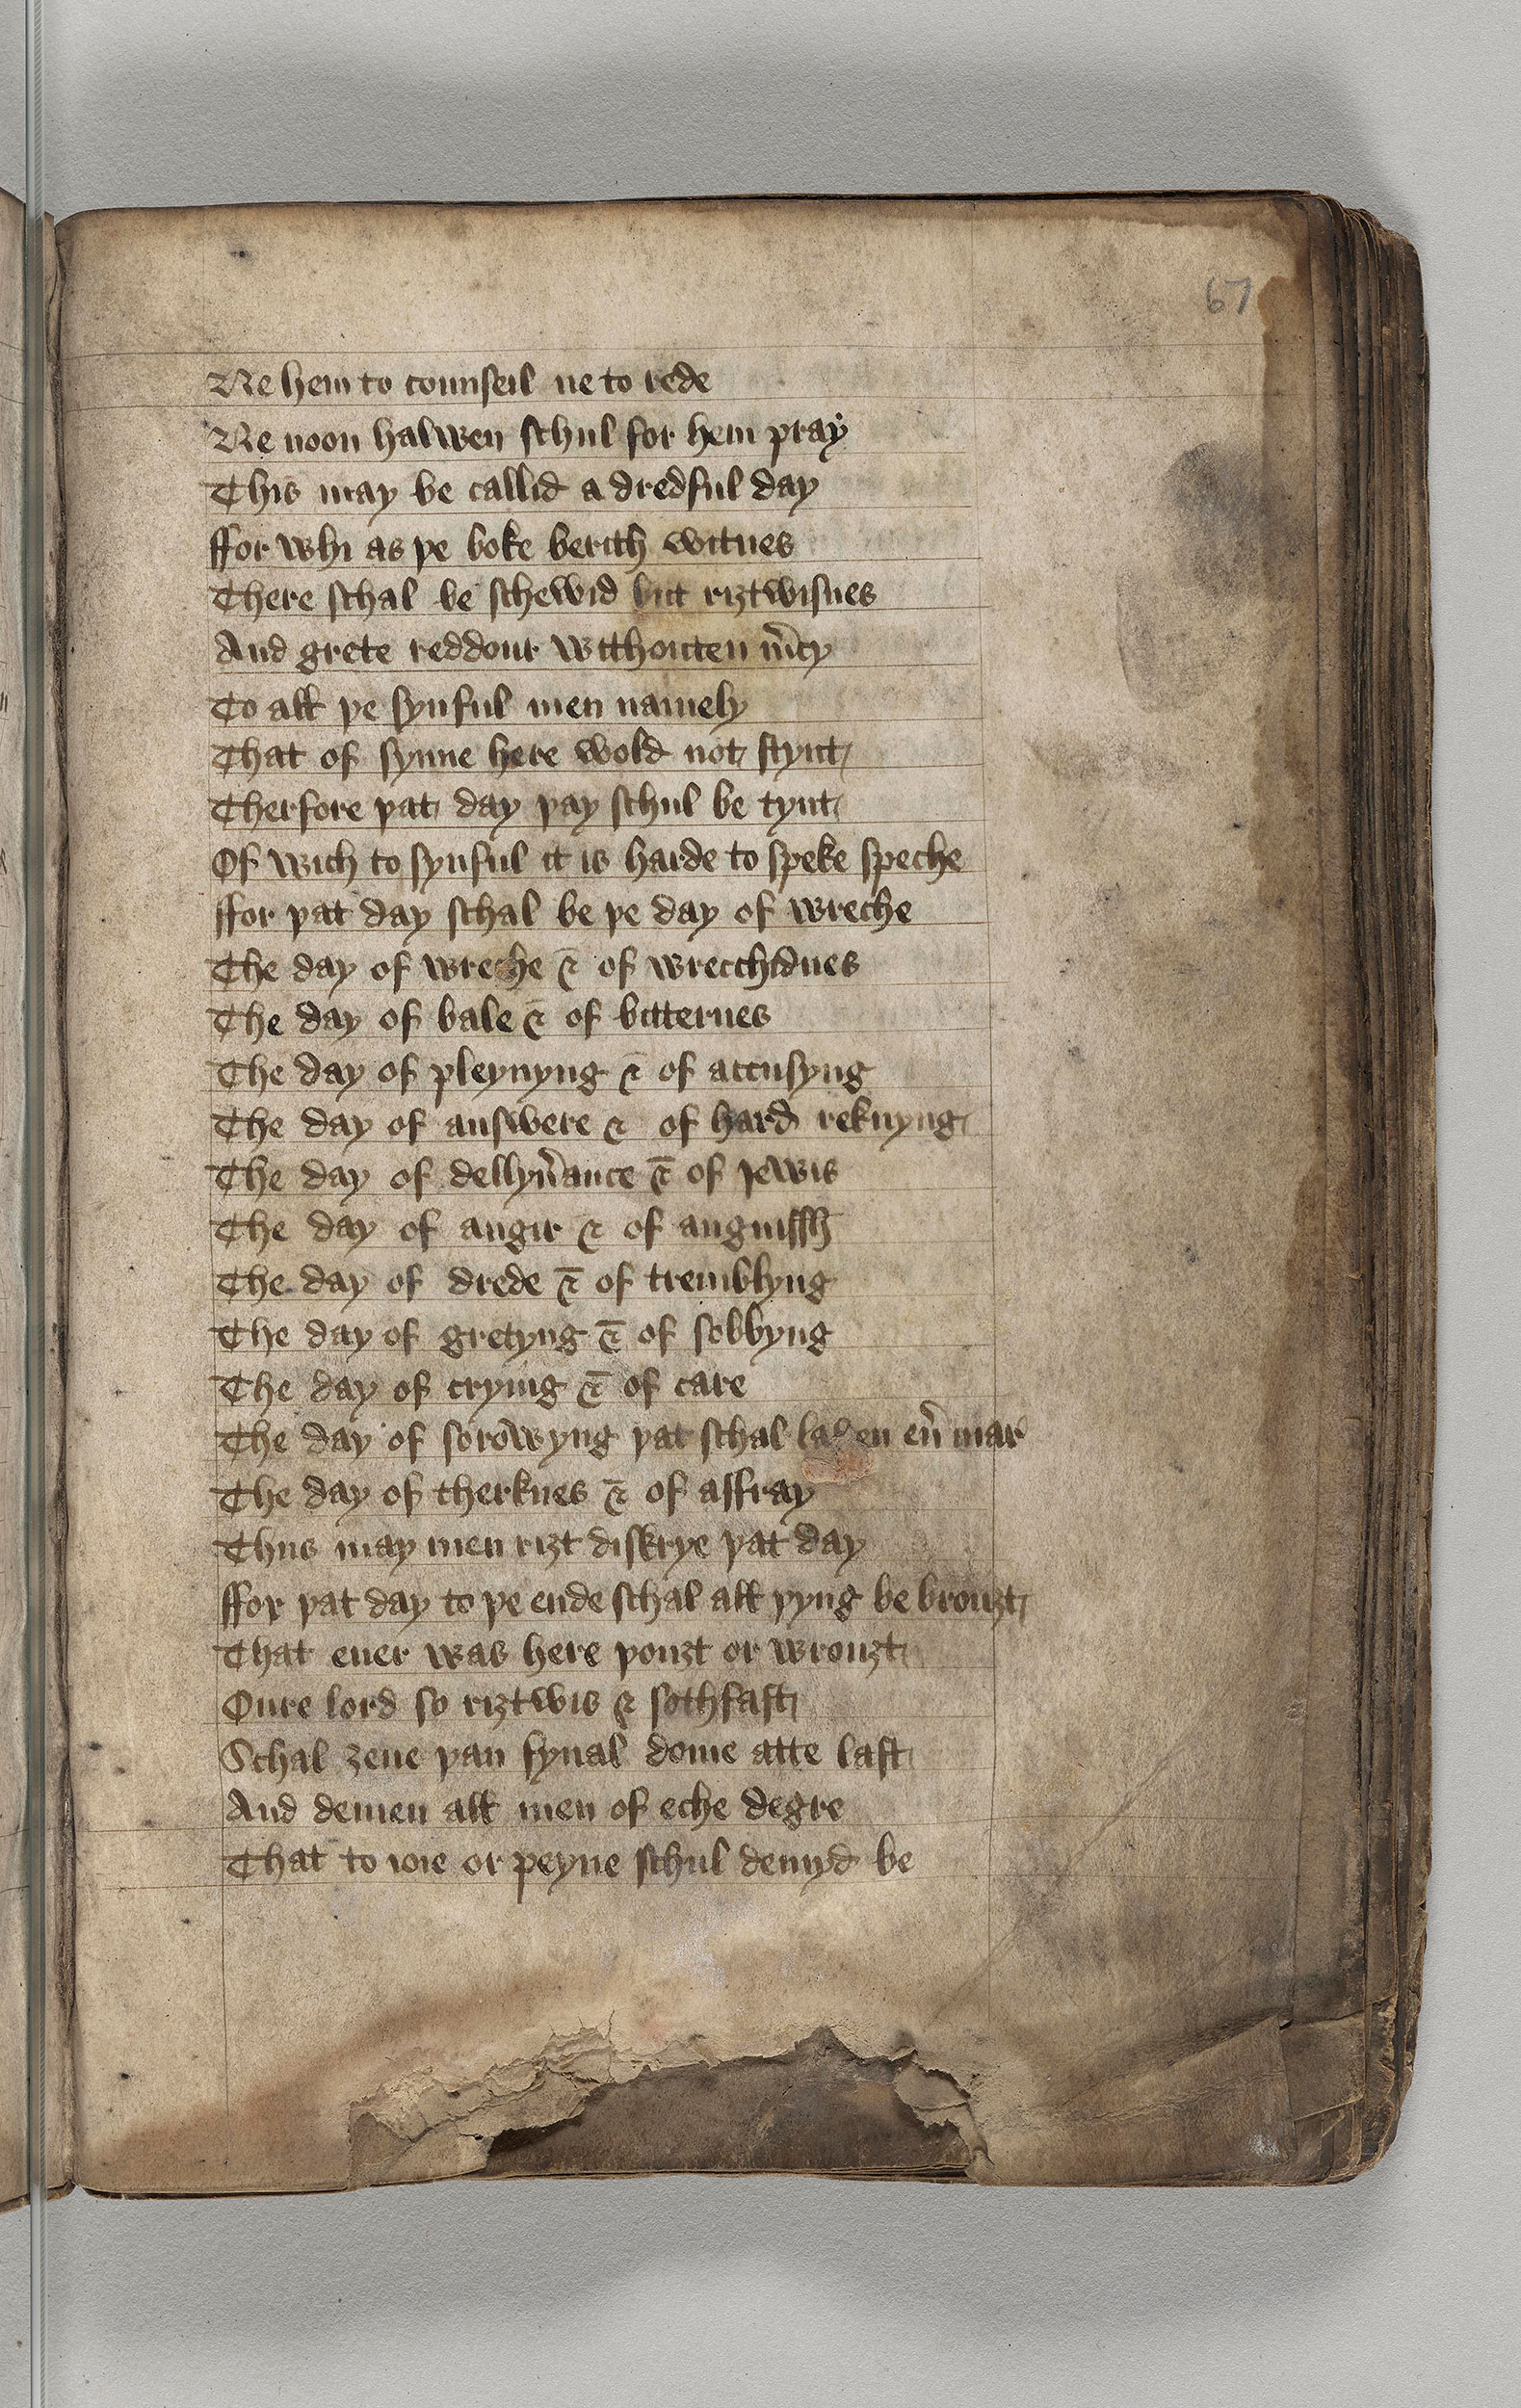 67
Ne hem to counseil ne to rede
Ne noon halwen schul for hem pray
This may be callid a dredful day
ffor whi as þe boke berith witnes
There schal be schewid but riȝtwisnes
And grete reddour withouten m̉cy
To all þe synful men namely
That of synne here wold not stynt
Therfore þat day þay schul be tynt
Of wich to synful it is harde to speke speche
ffor þat day schal be þe day of wreche
The day of wreche & of wrecchidnes
The day of bale & of bitternes
The day of pleynyng & of accusyng
The day of answere & of hard reknyng
The day of dellyũance & of Iewis
The day of angir & of anguissh
The day of drede & of tremblyng
The day of gretyng & of sobbyng
The day of crying & of care
The day of sorowyng þat schal en eũ mar
The day of therknes & of affray
Thus may men riȝt diskrye þat day
ffor þat day to þe ende schal all þyng be brouȝt
That euer was here þouȝt or wrouȝt
Oure lord so riȝtwis & sothfast
Schal ȝeue þan fynal dome atte last
And demen all men of eche degre
That to ioie or peyne schul demyd be